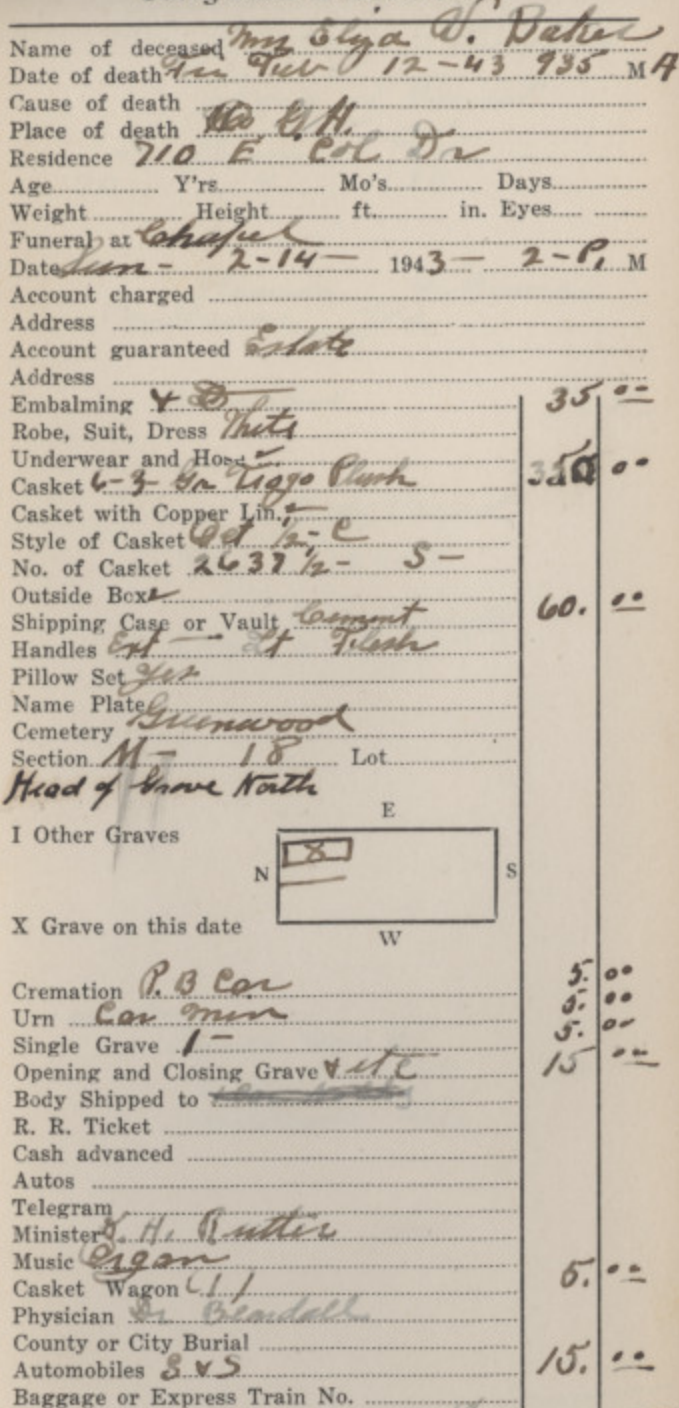 Name of deceased Mrs Eliza V. Baker
Date of death Fri Feb 12-43 935 M A
Cause of death
Place of death G. H.
Residence 710 E Col Dr
Age Y'rs Mo's Days
Weight Height ft. in. Eyes
Funeral at Chapel
Date Sun - 2-14- 1943- 2-P. M
Account charged
Address
Account guaranteed Estate
Address
Embalming & 35 00
Robe, Suit, Dress White
Underwear and Hose
Casket 6-3 Gr Plush 350 00
Casket with Copper Lin.
Style of Casket Oct 1/2- C
No. of Casket 2637 1/2- S-
Outside Box
Shipping Case or Vault Cement 60. 00
Handles Ext - Lt Flesh
Pillow Set yes
Name Plate
Cemetery Greenwood
Section M- 18 Lot
Head of Grave North
E
I Other Graves
N X S
X Grave on this date
W
Cremation P. B Car 5. 00
Urn Car 5. 00
Single Grave 1- 5. 00
Opening and Closing Grave & etc 15 00
Body Shipped to
R. R. Ticket
Cash advanced
Autos
Telegram
Minister H. Rutter
Music Organ
Casket Wagon (1) 5. 00
Physician Dr Beardall
County or City Burial
Automobiles S & S 15. 00
Baggage or Express Train No.